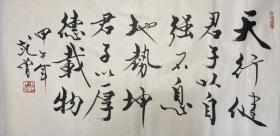 天行健
君子以自
强不息
地势坤
君子以厚
德载物
甲午年